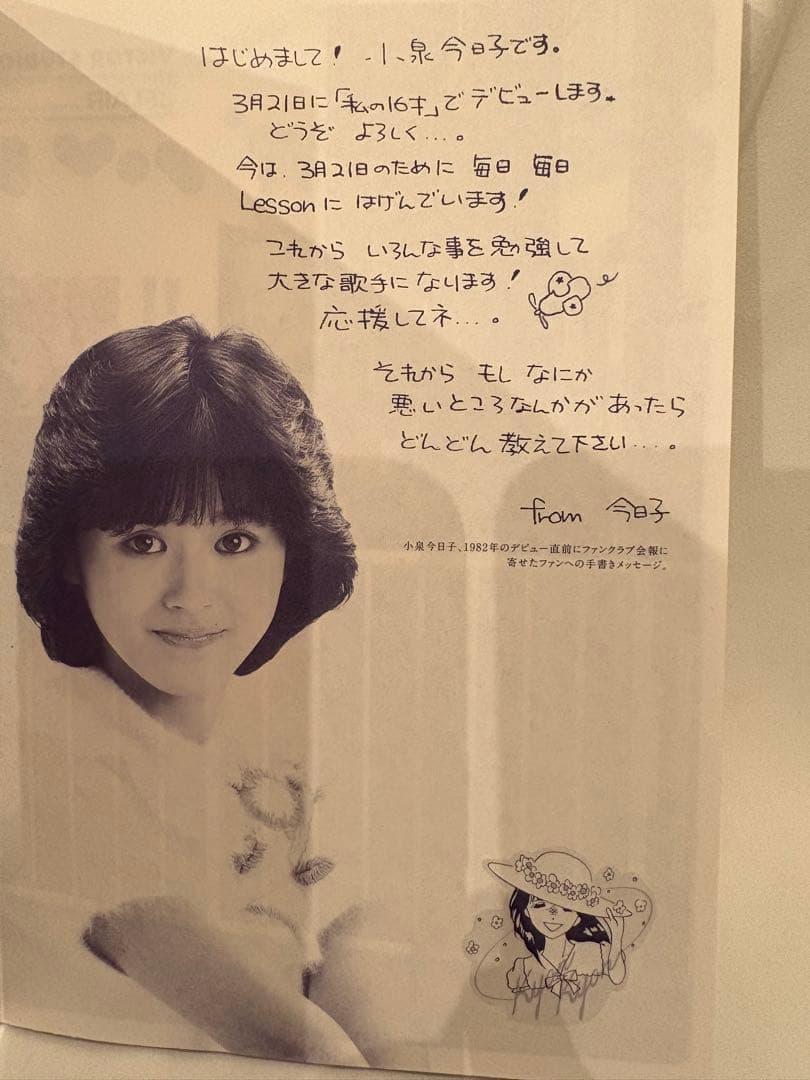 はじめまして! 小泉今日子です。
3月21日に「私の16才」でデビューします。
どうぞ よろしく...。
今は、3月21日のために 毎日 毎日
Lessonに はげんでいます!
これから いろんな事を勉強して
大きな歌手になります!
応援してネ...。
それから もし なにか
悪いところなんかが あったら
どんどん 教えて下さい....。
from 今日子
小泉今日子、1982年のデビュー直前にファンクラブ会報に
寄せたファンへの手書きメッセージ。